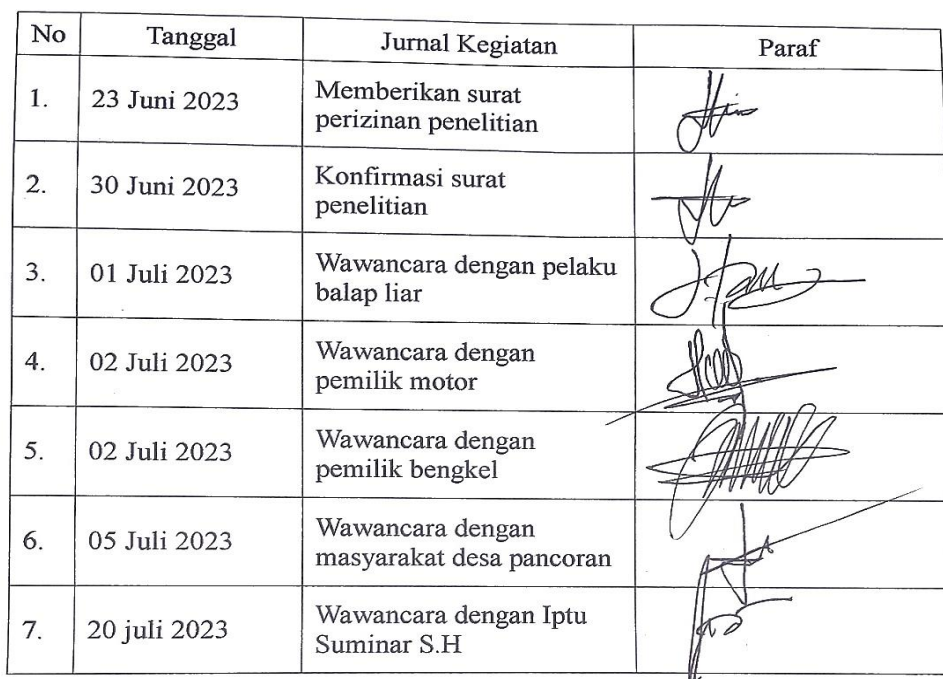 No Tanggal Jurnal Kegiatan Paraf
1. 23 Juni 2023 Memberikan surat
perizinan penelitian
2. 30 Juni 2023 Konfirmasi surat
penelitian
3. 01 Juli 2023 Wawancara dengan pelaku
balap liar
4. 02 Juli 2023 Wawancara dengan
pemilik motor
5. 02 Juli 2023 Wawancara dengan
pemilik bengkel
6. 05 Juli 2023 Wawancara dengan
masyarakat desa pancoran
7. 20 juli 2023 Wawancara dengan Iptu
Suminar S.H